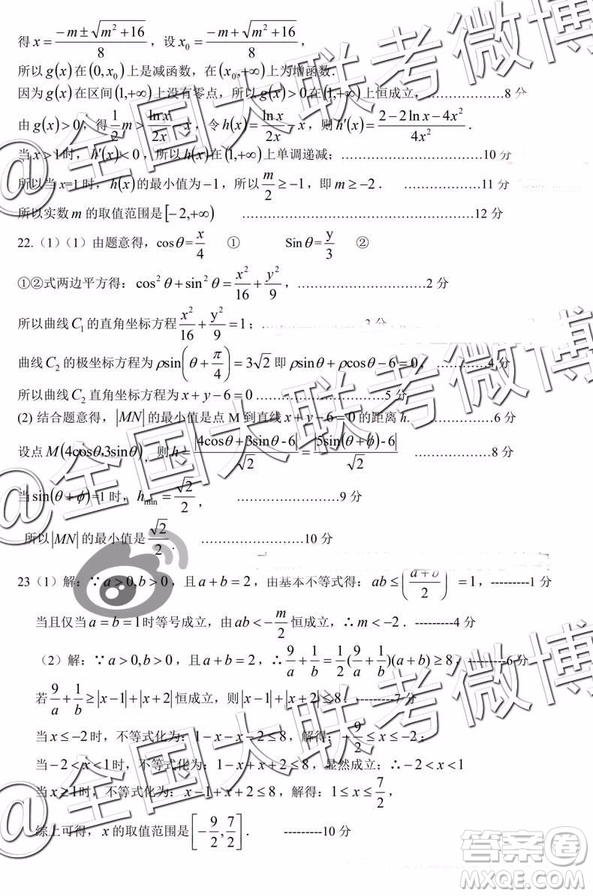 得 x = (-m ± √(m² + 16)) / 8 ，设 x₀ = (-m + √(m² + 16)) / 8 ，
所以 g(x) 在 (0, x₀) 上是减函数，在 (x₀, +∞) 上为增函数.
因为 g(x) 在区间 (1,+∞) 上没有零点，所以 g(x) > 0 在 (1,+∞) 上恒成立，………………8 分
由 g(x) > 0，得 1/2 m > lnx/2x - x，令 h(x) = lnx/2x - x，则 h′(x) = (2 - 2ln x - 4x²) / 4x² .
当 x > 1 时，h′(x) < 0，所以 h(x) 在 (1,+∞) 上单调递减；………………………10 分
所以当 x=1 时，h(x) 的最小值为 -1，所以 m/2 ≥ -1，即 m ≥ -2． ………………11 分
所以实数 m 的取值范围是 [-2,+∞) ………………………………12 分
22.（1）（1）由题意得，cosθ = x/4 ① Sinθ = y/3 ②
①②式两边平方得：cos²θ + sin²θ = x²/16 + y²/9 ，………………………2 分
所以曲线 C₁ 的直角坐标方程为 x²/16 + y²/9 = 1； ………………3 分
曲线 C₂ 的极坐标方程为 ρsin(θ + π/4) = 3√2 即 ρsinθ + ρcosθ - 6 = 0， ………4 分
所以曲线 C₂ 直角坐标方程为 x + y - 6 = 0 …………………5 分
(2) 结合题意得，|MN| 的最小值是点 M 到直线 x + y - 6 = 0 的距离 h. ………………6 分
设点 M(4cosθ,3sinθ)，则 h = |4cosθ + 3sinθ - 6| / √2 = |5sin(θ + φ) - 6| / √2 ………………8 分
当 sin(θ + φ)=1 时，h min = √2/2 ， …………………9 分
所以 |MN| 的最小值是 √2/2 ． …………………10 分
23（1）解：∵ a > 0, b > 0，且 a + b = 2，由基本不等式得：ab ≤ ((a + b)/2)² = 1，---------1 分
当且仅当 a = b = 1 时等号成立，由 ab < -m/2 恒成立，∴ m < -2． ---------4 分
（2）解：∵ a > 0, b > 0，且 a + b = 2，∴ 9/a + 1/b = 1/2 (9/a + 1/b)(a + b) ≥ 8，-------6 分
若 9/a + 1/b ≥ |x - 1| + |x + 2| 恒成立，则 |x - 1| + |x + 2| ≤ 8， -------7 分
当 x ≤ -2 时，不等式化为：1 - x - x - 2 ≤ 8，解得：-9/2 ≤ x ≤ -2
当 -2 < x < 1 时，不等式化为：1 - x + x + 2 ≤ 8，显然成立；∴ -2 < x < 1
当 x ≥ 1 时，不等式化为：x - 1 + x + 2 ≤ 8，解得：1 ≤ x ≤ 7/2 ，
综上可得，x 的取值范围是 [-9/2, 7/2]． ---------10 分
@全国大联考微博
@全国大联考微博
@全国大联考微博
答案圈